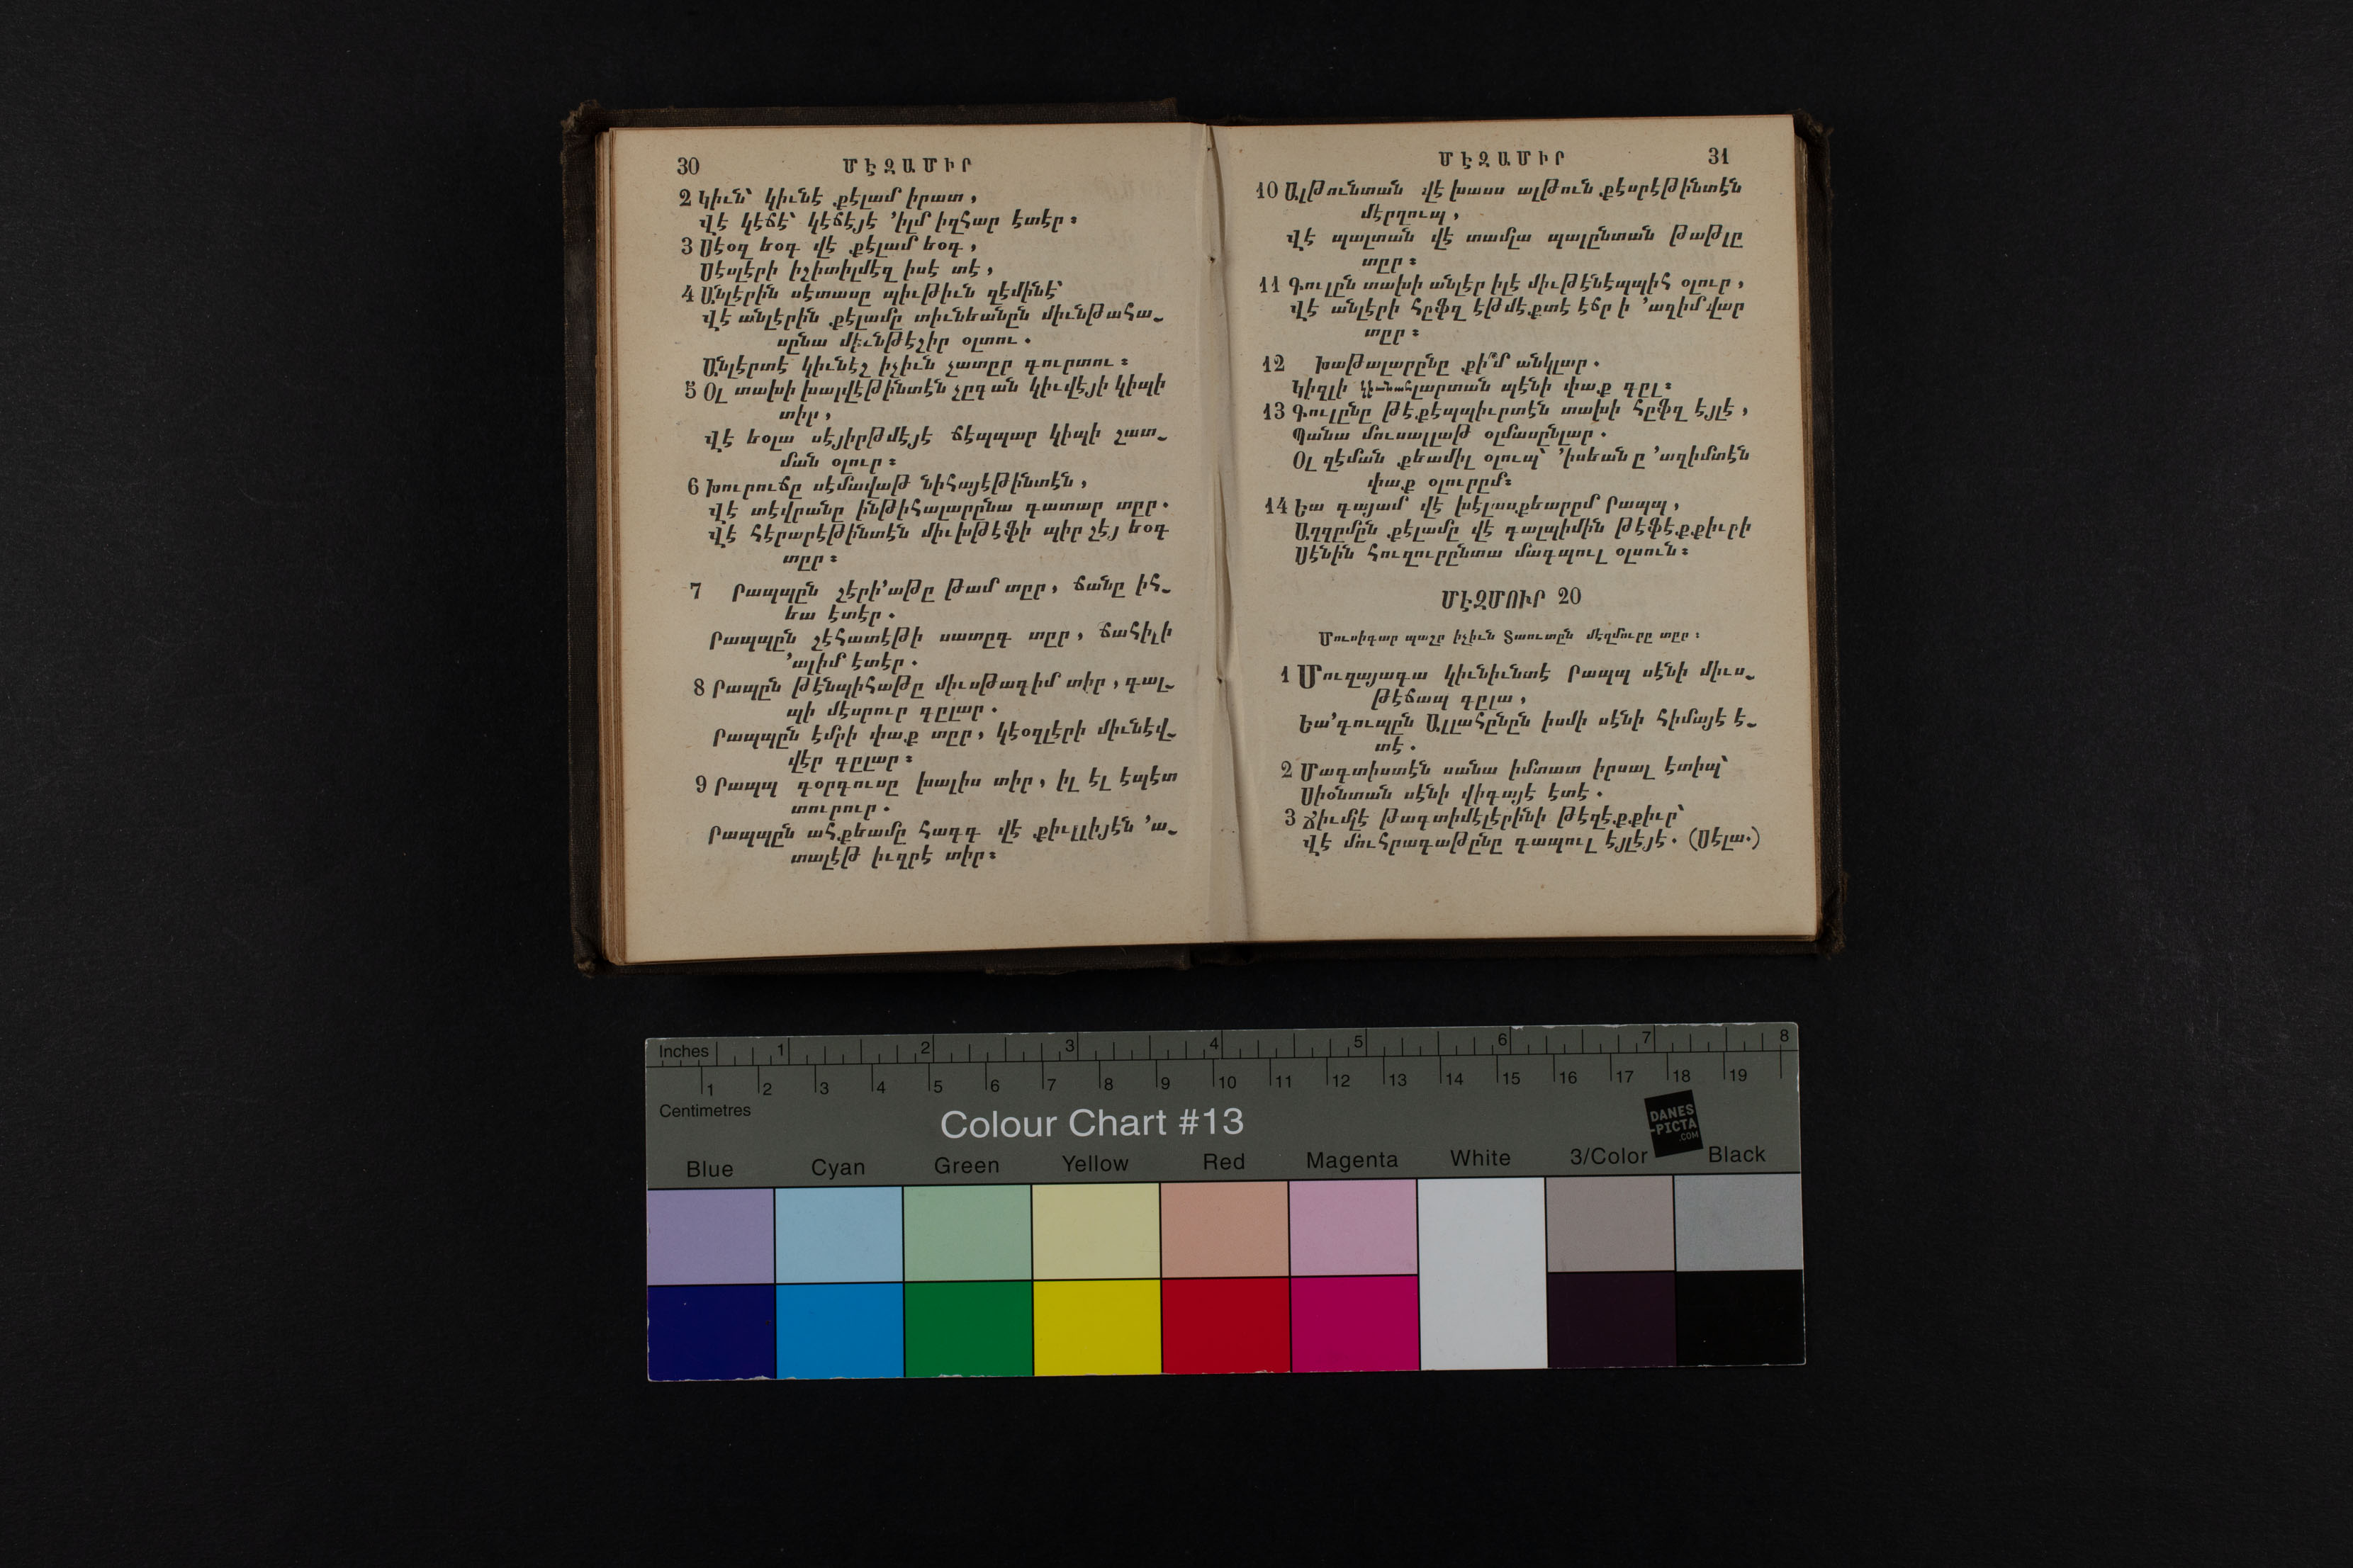 30 ՄԷԶԱՄԻՐ
2 Կիւն՝ կիւնէ քէլամ իրատ,
Վէ կէճէ՝ կէճէյէ ՚իլմ իզհար էտէր։
3 Սէօզ եօգ վէ քէլամ եօգ,
Սէսլէրի իշիտիլմէզ իսէ տէ,
4 Անլէրին սէտասը պիւթիւն զէմինէ՝
Վէ անլէրին քէլամը տիւնեանըն միւնթահա-
սընա մէւնթէշիր օլտու.
Անլէրտէ կիւնէշ իչիւն չատըր գուրտու։
5 Օլ տախի խալվէթինտէն չըգան կիւվէյի կիպի
տիր,
Վէ եօլա սէյիրթմէյէ ճէպպար կիպի շատ-
ման օլուր։
6 Խուրուճը սէմավաթ նիհայէթինտէն,
Վէ տէվրանը ինթիհալարընա գատար տըր.
Վէ հէրարէթինտէն միւխթէֆի պիր շէյ եօգ
տըր։
7 Րապպըն շէրի՚աթը թամ տըր, ճանը իհ-
եա էտէր.
Րապպըն շէհատէթի սատըգ տըր, ճահիլի
՚ալիմ էտէր.
8 Րապըն թէնպիհաթը միւսթագիմ տիր, գալ-
պի մէսրուր գըլար.
Րապպըն էմրի փաք տըր, կէօզլէրի միւնէվ-
վէր գըլար։
9 Րապպ գօրգուսը խալիս տիր, իլ էլ էպէտ
տուրուր.
Րապպըն ահքեամը հագգ վէ քիւլլիյէն ՚ա-
տալէթ իւզրէ տիր։
ՄԷԶԱՄԻՐ 31
10 Ալթունտան վէ խաս ալթուն քէսրէթինտէն
մէրղուպ,
Վէ պալտան վէ տամլա պալընտան թաթլը
տըր։
11 Գուլըն տախի անլէր իլէ միւթէնէպպիհ օլուր,
Վէ անլէրի հըֆզ էթմէքտէ էճր ի ՚ազիմ վար
տըր։
12 Խաթալարընը քի՞մ անկլար.
Կիզլի լարտան պէնի փաք գըլ։
13 Գուլընը թէքէպպիւրտէն տախի հըֆզ էյլէ,
Պանա մուսալլաթ օլմասընլար.
Օլ զէման քեամիլ օլուպ՝ ՚իսեան ը ՚ազիմտէն
փաք օլուրըմ։
14 Եա գայամ վէ խէլասքեարըմ Րապպ,
Աղզըմըն քէլամը վէ գալպիմին թէֆէքքիւրի
Սէնին հուզուրընտա մագպուլ օլսուն։
ՄԷԶՄՈՒՐ 20
Մուսիգար պաշը իչիւն Տաուտըն մէզմուրը տըր։
1 Մուզայագա կիւնիւնտէ Րապպ սէնի միւս-
թէճապ գըլա,
Եա՚գուպըն Ալլահընըն իսմի սէնի հիմայէ է-
տէ.
2 Մագտիստէն սանա իմտատ իրսալ էտիպ՝
Սիօնտան սէնի վիգայէ էտէ.
3 Ճիւմլէ թագտիմէլէրինի թէզէքքիւր՝
Վէ մուհրագաթընը գապուլ էյլէյէ. (Սէլա.)
Inches 1 2 3 4 5 6 7 8
1 2 3 4 5 6 7 8 9 10 11 12 13 14 15 16 17 18 19
Centimetres
Colour Chart #13
DANES
-PICTA
.COM
Blue Cyan Green Yellow Red Magenta White 3/Color Black